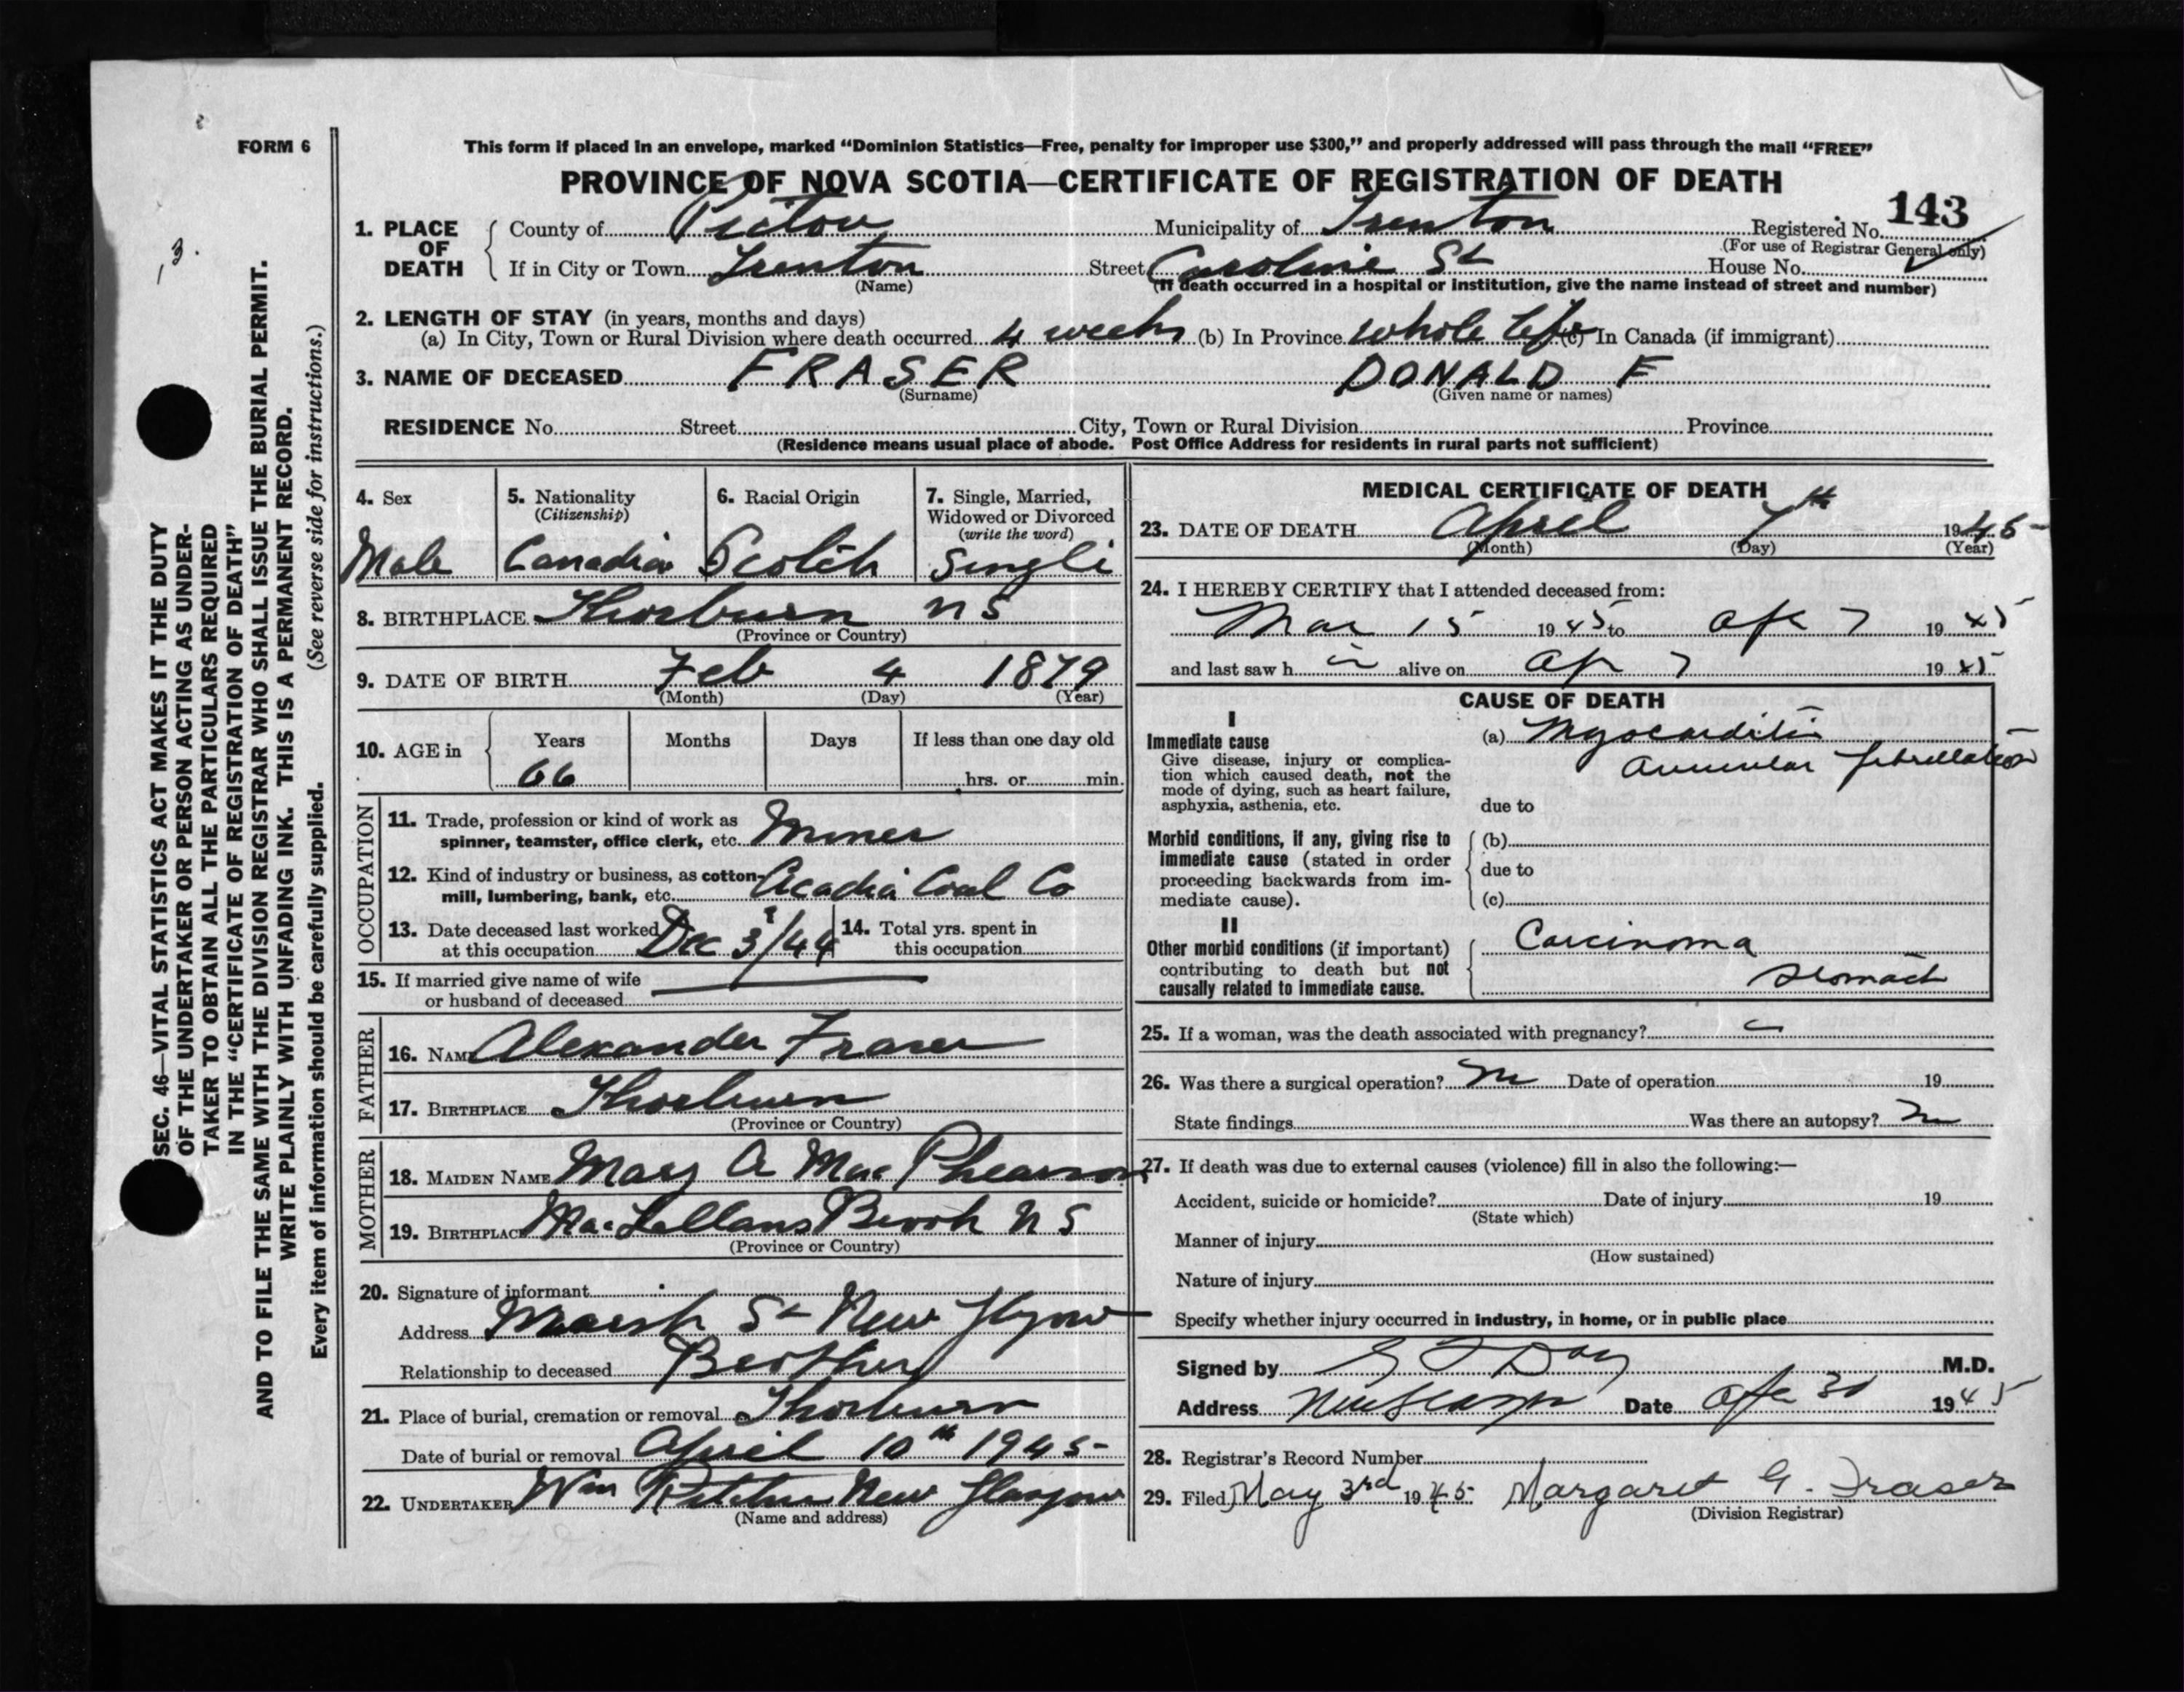 FORM 6
This form if placed in an envelope, marked “Dominion Statistics—Free, penalty for improper use $300,” and properly addressed will pass through the mail “FREE”
PROVINCE OF NOVA SCOTIA—CERTIFICATE OF REGISTRATION OF DEATH
143
1. PLACE OF DEATH
County of Pictou Municipality of Trenton Registered No.
(For use of Registrar General only)
If in City or Town Trenton Street Caroline St House No.
(Name)
(If death occurred in a hospital or institution, give the name instead of street and number)
2. LENGTH OF STAY (in years, months and days)
(a) In City, Town or Rural Division where death occurred 4 weeks (b) In Province whole life (c) In Canada (if immigrant)
3. NAME OF DECEASED FRASER DONALD F
(Surname) (Given name or names)
RESIDENCE No. Street City, Town or Rural Division Province
(Residence means usual place of abode. Post Office Address for residents in rural parts not sufficient)
4. Sex
Male
5. Nationality
(Citizenship)
Canadian
6. Racial Origin
Scotch
7. Single, Married,
Widowed or Divorced
(write the word)
Single
8. BIRTHPLACE Thorburn N S
(Province or Country)
9. DATE OF BIRTH Feb 4 1879
(Month) (Day) (Year)
10. AGE in Years Months Days If less than one day old
66 hrs. or min.
OCCUPATION
11. Trade, profession or kind of work as
spinner, teamster, office clerk, etc. Miner
12. Kind of industry or business, as cotton-
mill, lumbering, bank, etc. Acadia Coal Co
13. Date deceased last worked
at this occupation Dec 3/44
14. Total yrs. spent in
this occupation
15. If married give name of wife
or husband of deceased
FATHER
16. NAME Alexander Fraser
17. BIRTHPLACE Thorburn
(Province or Country)
MOTHER
18. MAIDEN NAME Mary A MacPhearson
19. BIRTHPLACE MacLellans Brook N S
(Province or Country)
20. Signature of informant
Address Marsh St New Glgow
Relationship to deceased Brother
21. Place of burial, cremation or removal Thorburn
Date of burial or removal April 10th 1945
22. UNDERTAKER Wm New Glasgow
(Name and address)
MEDICAL CERTIFICATE OF DEATH
23. DATE OF DEATH April 7th 1945
(Month) (Day) (Year)
24. I HEREBY CERTIFY that I attended deceased from:
Mar 15 1945 to Apr 7 1945
and last saw h alive on Ap 7 1945
CAUSE OF DEATH
I
Immediate cause
Give disease, injury or complica-
tion which caused death, not the
mode of dying, such as heart failure,
asphyxia, asthenia, etc.
(a) Myocarditis
Auricular fibrillation
due to
Morbid conditions, if any, giving rise to
immediate cause (stated in order
proceeding backwards from im-
mediate cause).
(b)
due to
(c)
II
Other morbid conditions (if important)
contributing to death but not
causally related to immediate cause.
Carcinoma
stomach
25. If a woman, was the death associated with pregnancy?
26. Was there a surgical operation? no Date of operation 19
State findings Was there an autopsy? no
27. If death was due to external causes (violence) fill in also the following:—
Accident, suicide or homicide? Date of injury 19
(State which)
Manner of injury
(How sustained)
Nature of injury
Specify whether injury occurred in industry, in home, or in public place
Signed by Day M.D.
Address New Glasgow Date Apr 30 1945
28. Registrar’s Record Number
29. Filed May 3rd 1945 Margaret G. Fraser
(Division Registrar)
SEC. 46—VITAL STATISTICS ACT MAKES IT THE DUTY
OF THE UNDERTAKER OR PERSON ACTING AS UNDER-
TAKER TO OBTAIN ALL THE PARTICULARS REQUIRED
IN THE “CERTIFICATE OF REGISTRATION OF DEATH”
AND TO FILE THE SAME WITH THE DIVISION REGISTRAR WHO SHALL ISSUE THE BURIAL PERMIT.
WRITE PLAINLY WITH UNFADING INK. THIS IS A PERMANENT RECORD.
Every item of information should be carefully supplied. (See reverse side for instructions.)